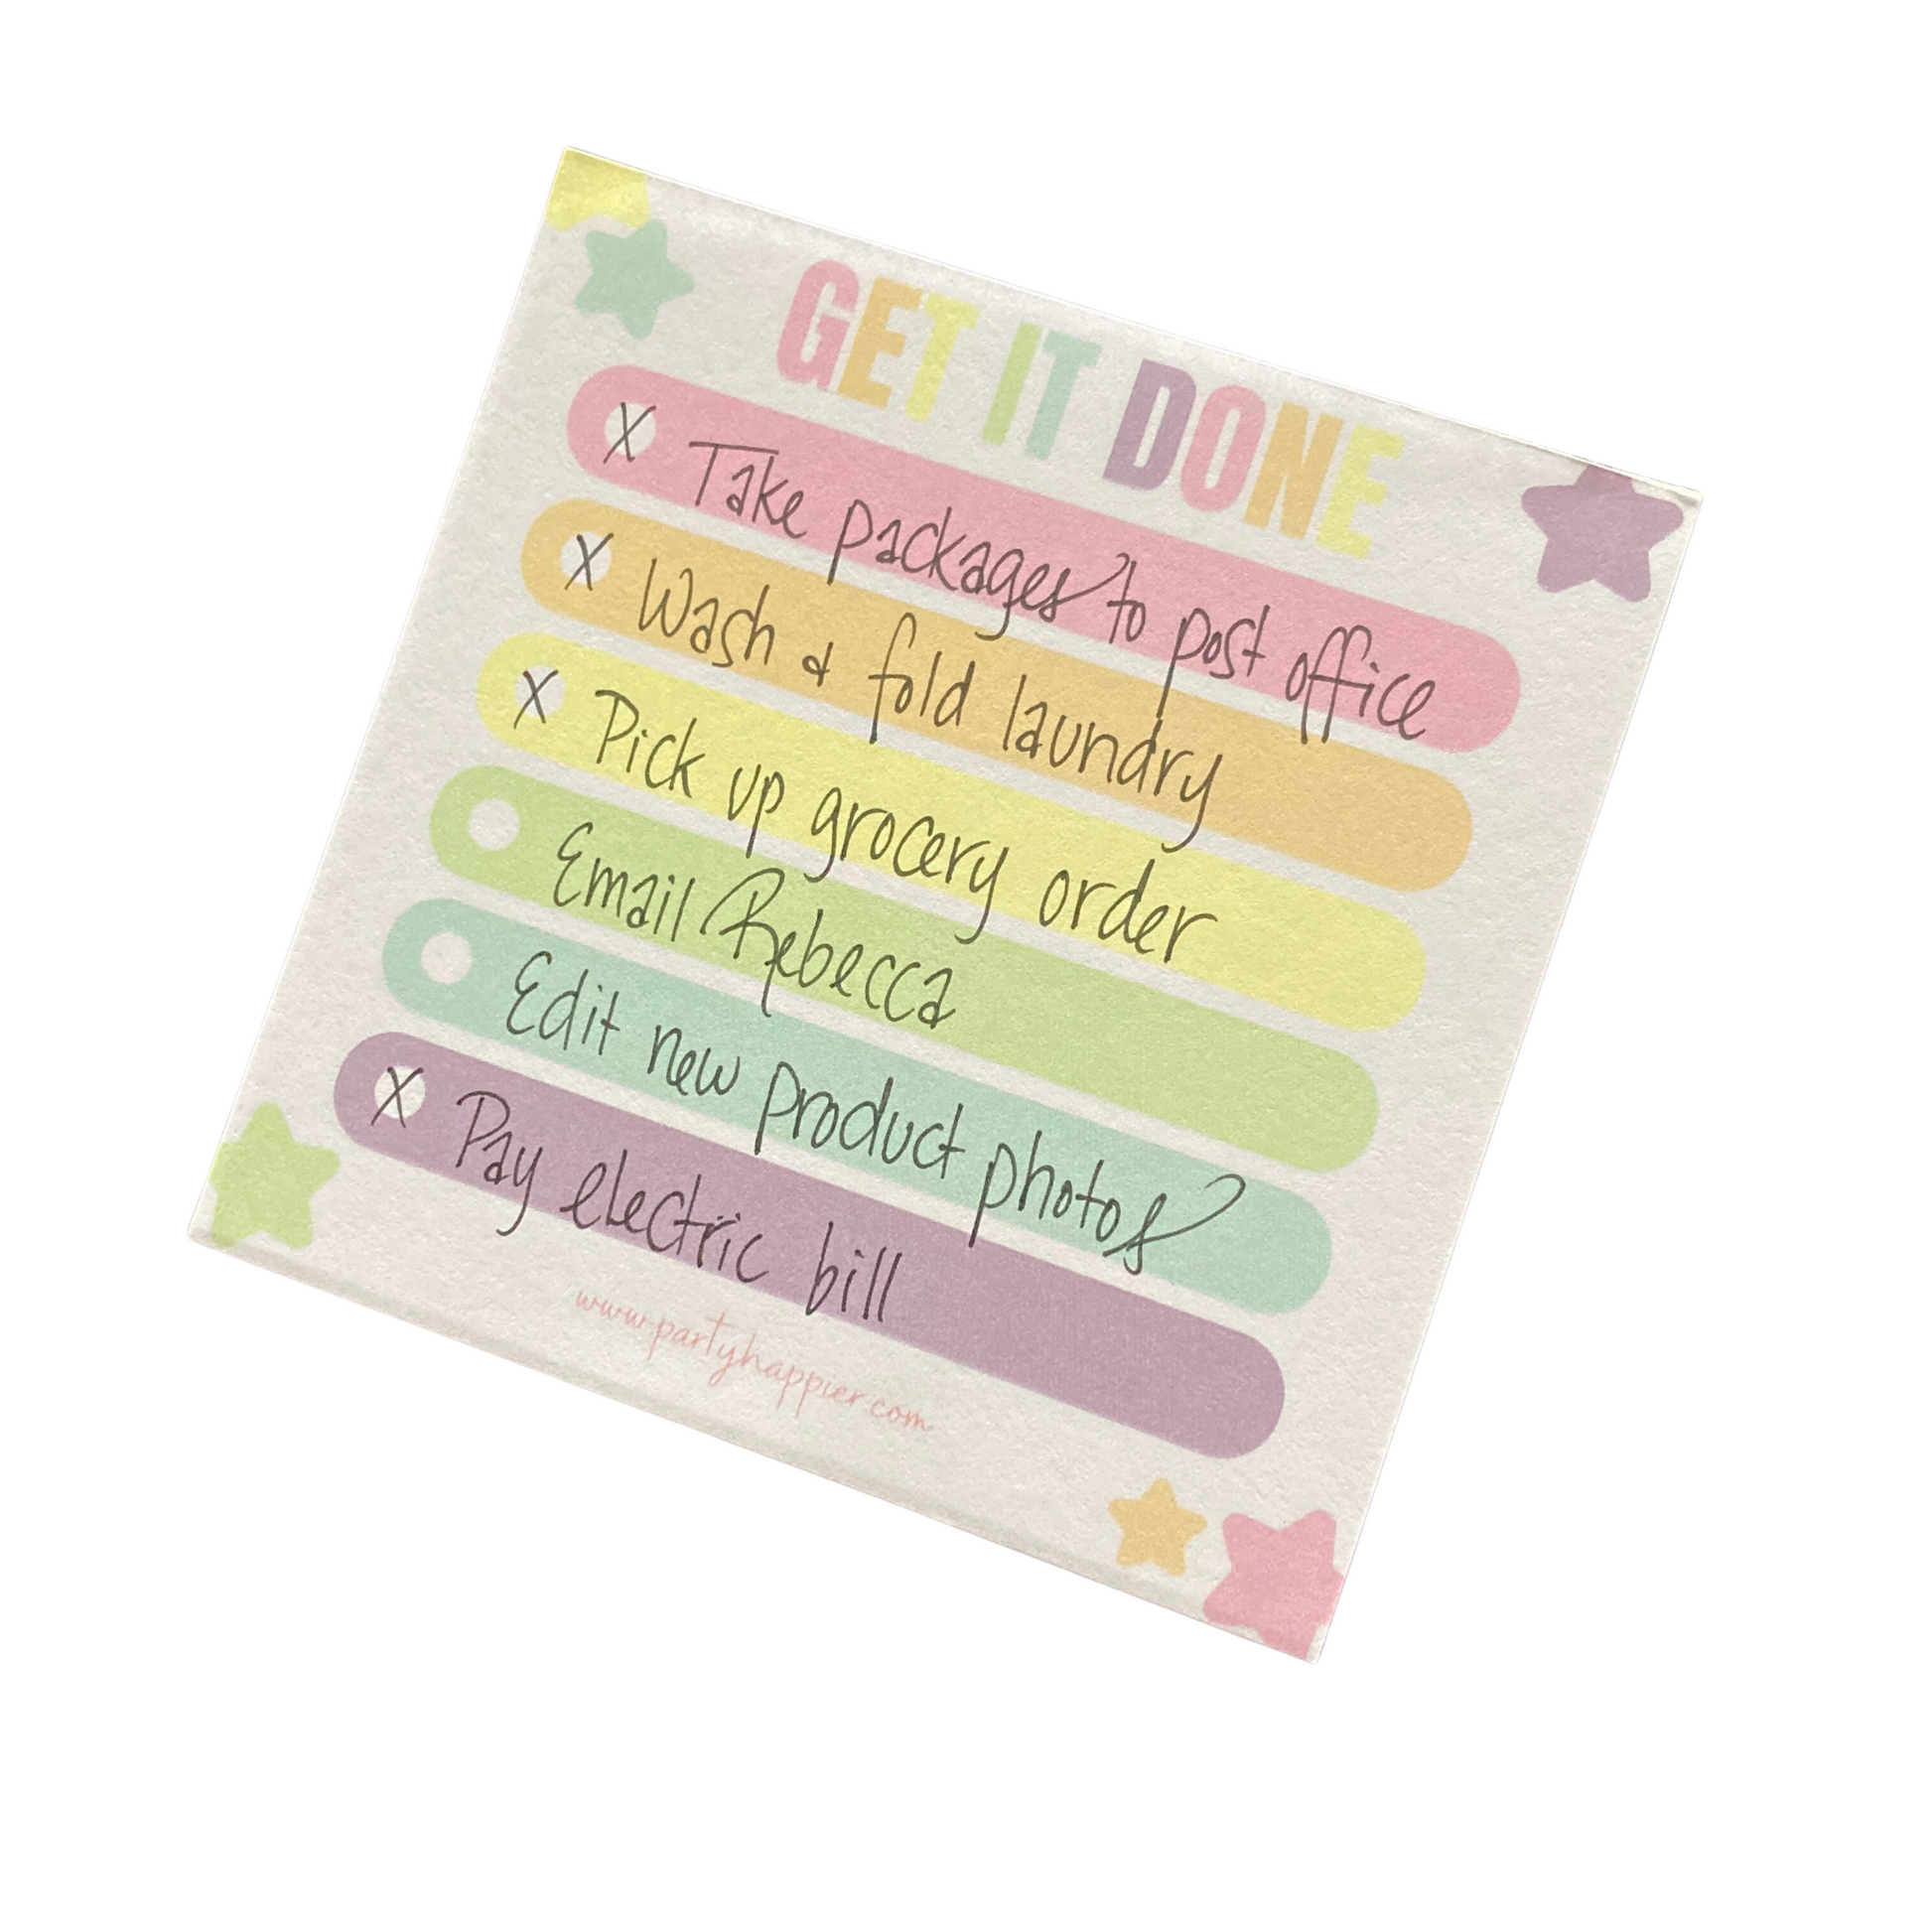 GET IT DONE
X Take packages to post office
X Wash & fold laundry
X Pick up grocery order
Email Rebecca
Edit new product photos
X Pay electric bill
www.partyhappier.com